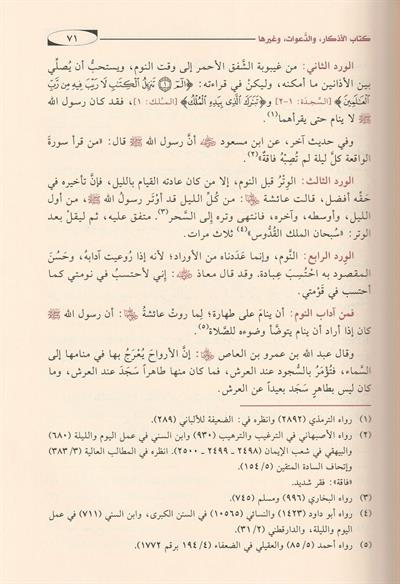 كتاب الأذكار، والدَّعوات، وغيرها
٧١
الورد الثاني: من غيبوبة الشَّفق الأحمر إلى وقت النوم، ويستحبُّ أن يُصلِّي
بين الأذانين ما أمكنه، وليكنْ في قراءته: ﴿الٓمٓ ۝ تَنزِيلُ ٱلْكِتَٰبِ لَا رَيْبَ فِيهِ مِن رَّبِّ
ٱلْعَٰلَمِينَ﴾ [السَّجدَة: ١-٢] و﴿تَبَٰرَكَ ٱلَّذِى بِيَدِهِ ٱلْمُلْكُ﴾ [المُلك: ١]، فقد كان رسول الله
ﷺ لا ينام حتى يقرأهما(١).
وفي حديث آخر، عن ابن مسعود ﷺ أنَّ رسول الله ﷺ قال: «من قرأ سورةَ
الواقعة كلَّ ليلة لم تُصِبْهُ فاقةٌ»(٢).
الورد الثالث: الوِتْرُ قبل النوم، إلا من كان عادته القيام بالليل، فإنَّ تأخيره في
حقِّه أفضل، قالت عائشة رضي الله عنها: من كُلِّ الليل قد أوْتَر رسولُ الله ﷺ، من أول
الليل، وأوسطه، وآخره، فانتهى وتره إلى السَّحر(٣). متفق عليه، ثم ليقلْ بعد
الوتر: «سُبحان الملك القُدُّوس»(٤) ثلاث مرات.
الورد الرابع: النَّوم، وإنما عَدَدناه من الأوراد؛ لأنه إذا رُوعيت آدابُهُ، وحَسُنَ
المقصود به احْتُسِبَ عِبادة. وقد قال معاذ رضي الله عنه: إني لأحتسبُ في نومتي كما
أحتسب في قَوْمتي.
فمن آداب النوم: أن ينامَ على طهارة؛ لِما روتْ عائشةُ رضي الله عنها: أن رسول الله ﷺ
كان إذا أراد أن ينام يتوضَّأ وضوءه للصَّلاة(٥).
وقال عبد الله بن عمرو بن العاص رضي الله عنهما: إنَّ الأرواحَ يُعْرَجُ بها في منامها إلى
السَّماء، فتُؤْمَرُ بالسُّجود عند العرش، فما كان منها طاهراً سَجَد عند العرش، وما
كان ليس بطاهرٍ سَجَد بعيداً عن العرش.
(١) رواه الترمذي (٢٨٩٢) وانظره في: الضعيفة للألباني (٢٨٩).
(٢) رواه الأصبهاني في الترغيب والترهيب (٩٣٠) وابن السني في عمل اليوم والليلة (٦٨٠)
والبيهقي في شعب الإيمان (٢٤٩٨ ـ ٢٤٩٩ ـ ٢٥٠٠). انظره في المطالب العالية (٣/٣٨٣)
وإتحاف السادة المتقين (٥/١٥٤).
«فاقة»: فقر شديد.
(٣) رواه البخاري (٩٩٦) ومسلم (٧٤٥).
(٤) رواه أبو داود (١٤٢٣) والنسائي (١٠٥٦٥) في السنن الكبرى، وابن السني (٧١١) في عمل
اليوم والليلة، والدارقطني (٣١/٢).
(٥) رواه أحمد (٨٥/٥) والعقيلي في الضعفاء (١٩٤/٤ برقم ١٧٧٢).